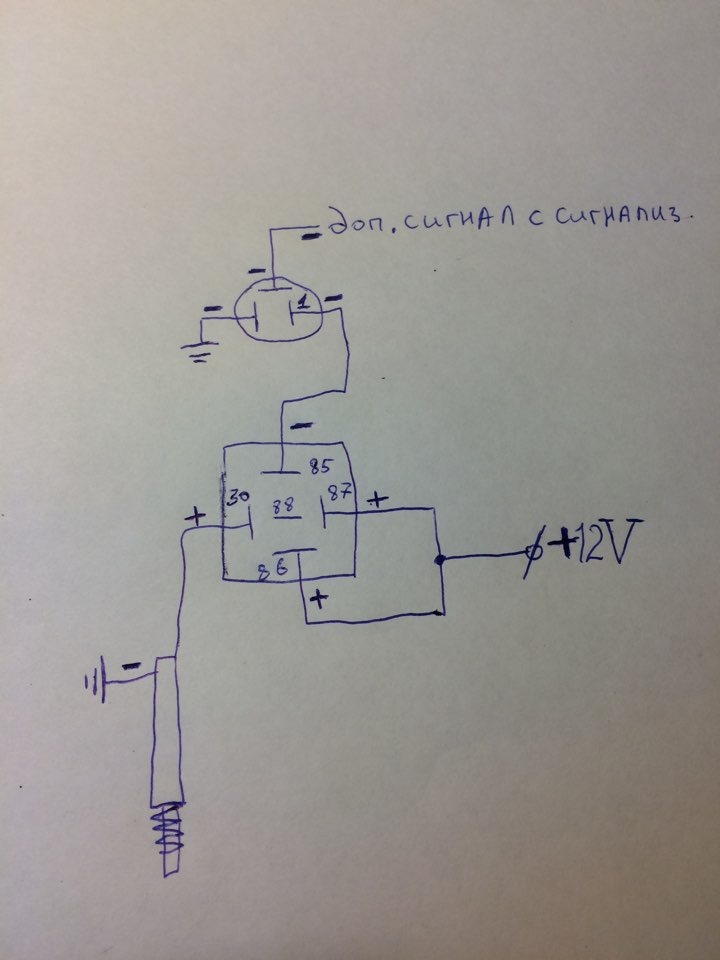 − доп. сигнал с сигнализ.
−
− 1 −
−
85
30 88 87 +
+
+12V
86
+
−